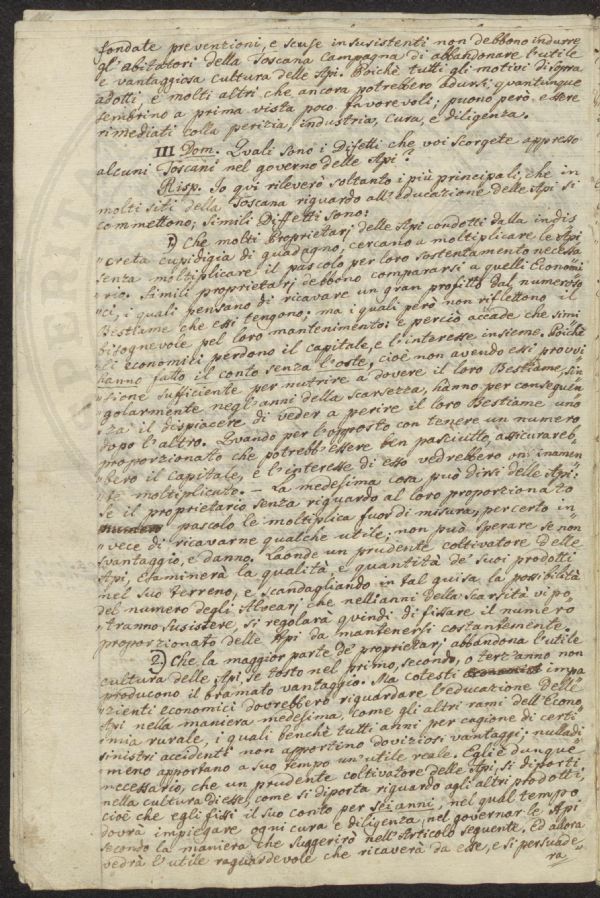 fondate preventioni, e scuse insusistenti non debbono indurre
gl'abitatori della Toscana Campagna di abbandonare l'utile
e vantaggiosa cultura delle Api. Poichè tutti gli motivi di sopra
adotti, e molti altri che ancora potrebbero adursi, quantunque
sembrino a prima vista poco favorevoli; puono però essere
rimediati colla perizia, industria, cura, e diligenza.
III Dom. Quali sono i Difetti che voi scorgete appresso
alcuni Toscani nel governo delle Api?
Risp. Io qui rileverò soltanto i più principali, che in
molti siti della Toscana riguardo all'educazione delle Api si
commettono; simili Diffetti sono:
1) Che molti Proprietarj delle Api condotti dalla indis
"creta cupidigia di guadagno, cercano a moltiplicare le Api
senza moltiplicare il pascolo per loro sostentamento necessa
"rio. Simili proprietarj debbono compararsi a quelli Economi
"ci, i quali pensano di ricavare un gran profitto dal numeroso
Bestiame che essi tengono; ma i quali però non riflettono il
bisognevole pel loro mantenimento: e perciò accade che simi
"li economici perdono il capitale, e l'interesse insieme. Poichè
hanno fatto il conto senza l'oste, cioè non avendo essi provvi
"sione sufficiente per nutrire a dovere il loro Bestiame, sin
"golarmente negl'anni della scarsezza, hanno per conseguen
"za il dispiacere di veder a perire il loro Bestiame uno
dopo l'altro. Quando per l'opposto con tenere un numero
proporzionato che potrebb'essere ben pasciuto, assicurareb
"bero il capitale, e l'interesse di esso vedrebbero on̄inamen
"te moltiplicato. — La medesima cosa può dirsi delle Api:
se il proprietario senza riguardo al loro proporzionato
pascolo le moltiplica fuor di misura, per certo in
"vece di ricavarne qualche utile; non può sperare se non
svantaggio, e danno. Laonde un prudente coltivatore delle
Api, esaminerà la qualità e quantità de' suoi prodotti
nel suo Terreno, e scandagliando in tal guisa la possibilità
del numero degli Alvearj che nelli anni della scarsità vi po
"tranno susistere, si regolarà quindi di fissare il numero
proporzionato delle Api da mantenersi costantemente.
2) Che la maggior parte de' proprietarj abbandona l'utile
cultura delle Api, se tosto nel primo, secondo, o tert'anno non
producono il bramato vantaggio. Ma cotesti impa
"zienti economici dovrebbero riguardare l'educazione delle
Api nella maniera medesima, come gli altri rami dell'Econo
"mia rurale, i quali benchè tutti anni per cagione di certi
sinistri accidenti non apportino doviziosi vantaggi; nulladi
"meno apportano a suo tempo un'utile reale. Egli è dunque
necessario, che un prudente coltivatore delle Api, si diporti
nella cultura di esse, come si diporta riguardo agli altri prodotti,
cioè che egli fissi il suo conto per sei anni, nel qual tempo
dovrà impiegare ogni cura e diligenza, nel governar le Api
secondo la maniera che suggerirò nell'Articolo seguente. Ed allora
vedrà l'utile raguardevole che ricaverà da esse, e si persuade
"rà